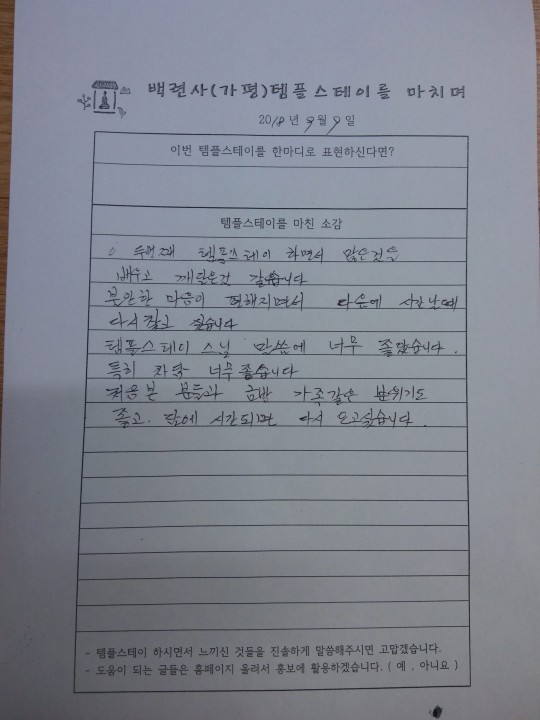 백련사(가평)템플스테이를 마치며
2018 년 9월 9 일
이번 템플스테이를 한마디로 표현하신다면?
템플스테이를 마친 소감
템플스테이 하면서 많은것을
배우고 깨달은것 같습니다
불안한 마음이 편해지면서 다음에 시간날때
다시 찾고 싶습니다
템플스테이 스님 말씀에 너무 좋았습니다.
특히 차담 너무 좋습니다
처음본 분들과 금방 가족같은 분위기도
좋고. 담에 시간되면 다시 오고싶습니다.
- 템플스테이 하시면서 느끼신 것들을 진솔하게 말씀해주시면 고맙겠습니다.
- 도움이 되는 글들은 홈페이지 올려서 홍보에 활용하겠습니다. ( 예 , 아니요 )